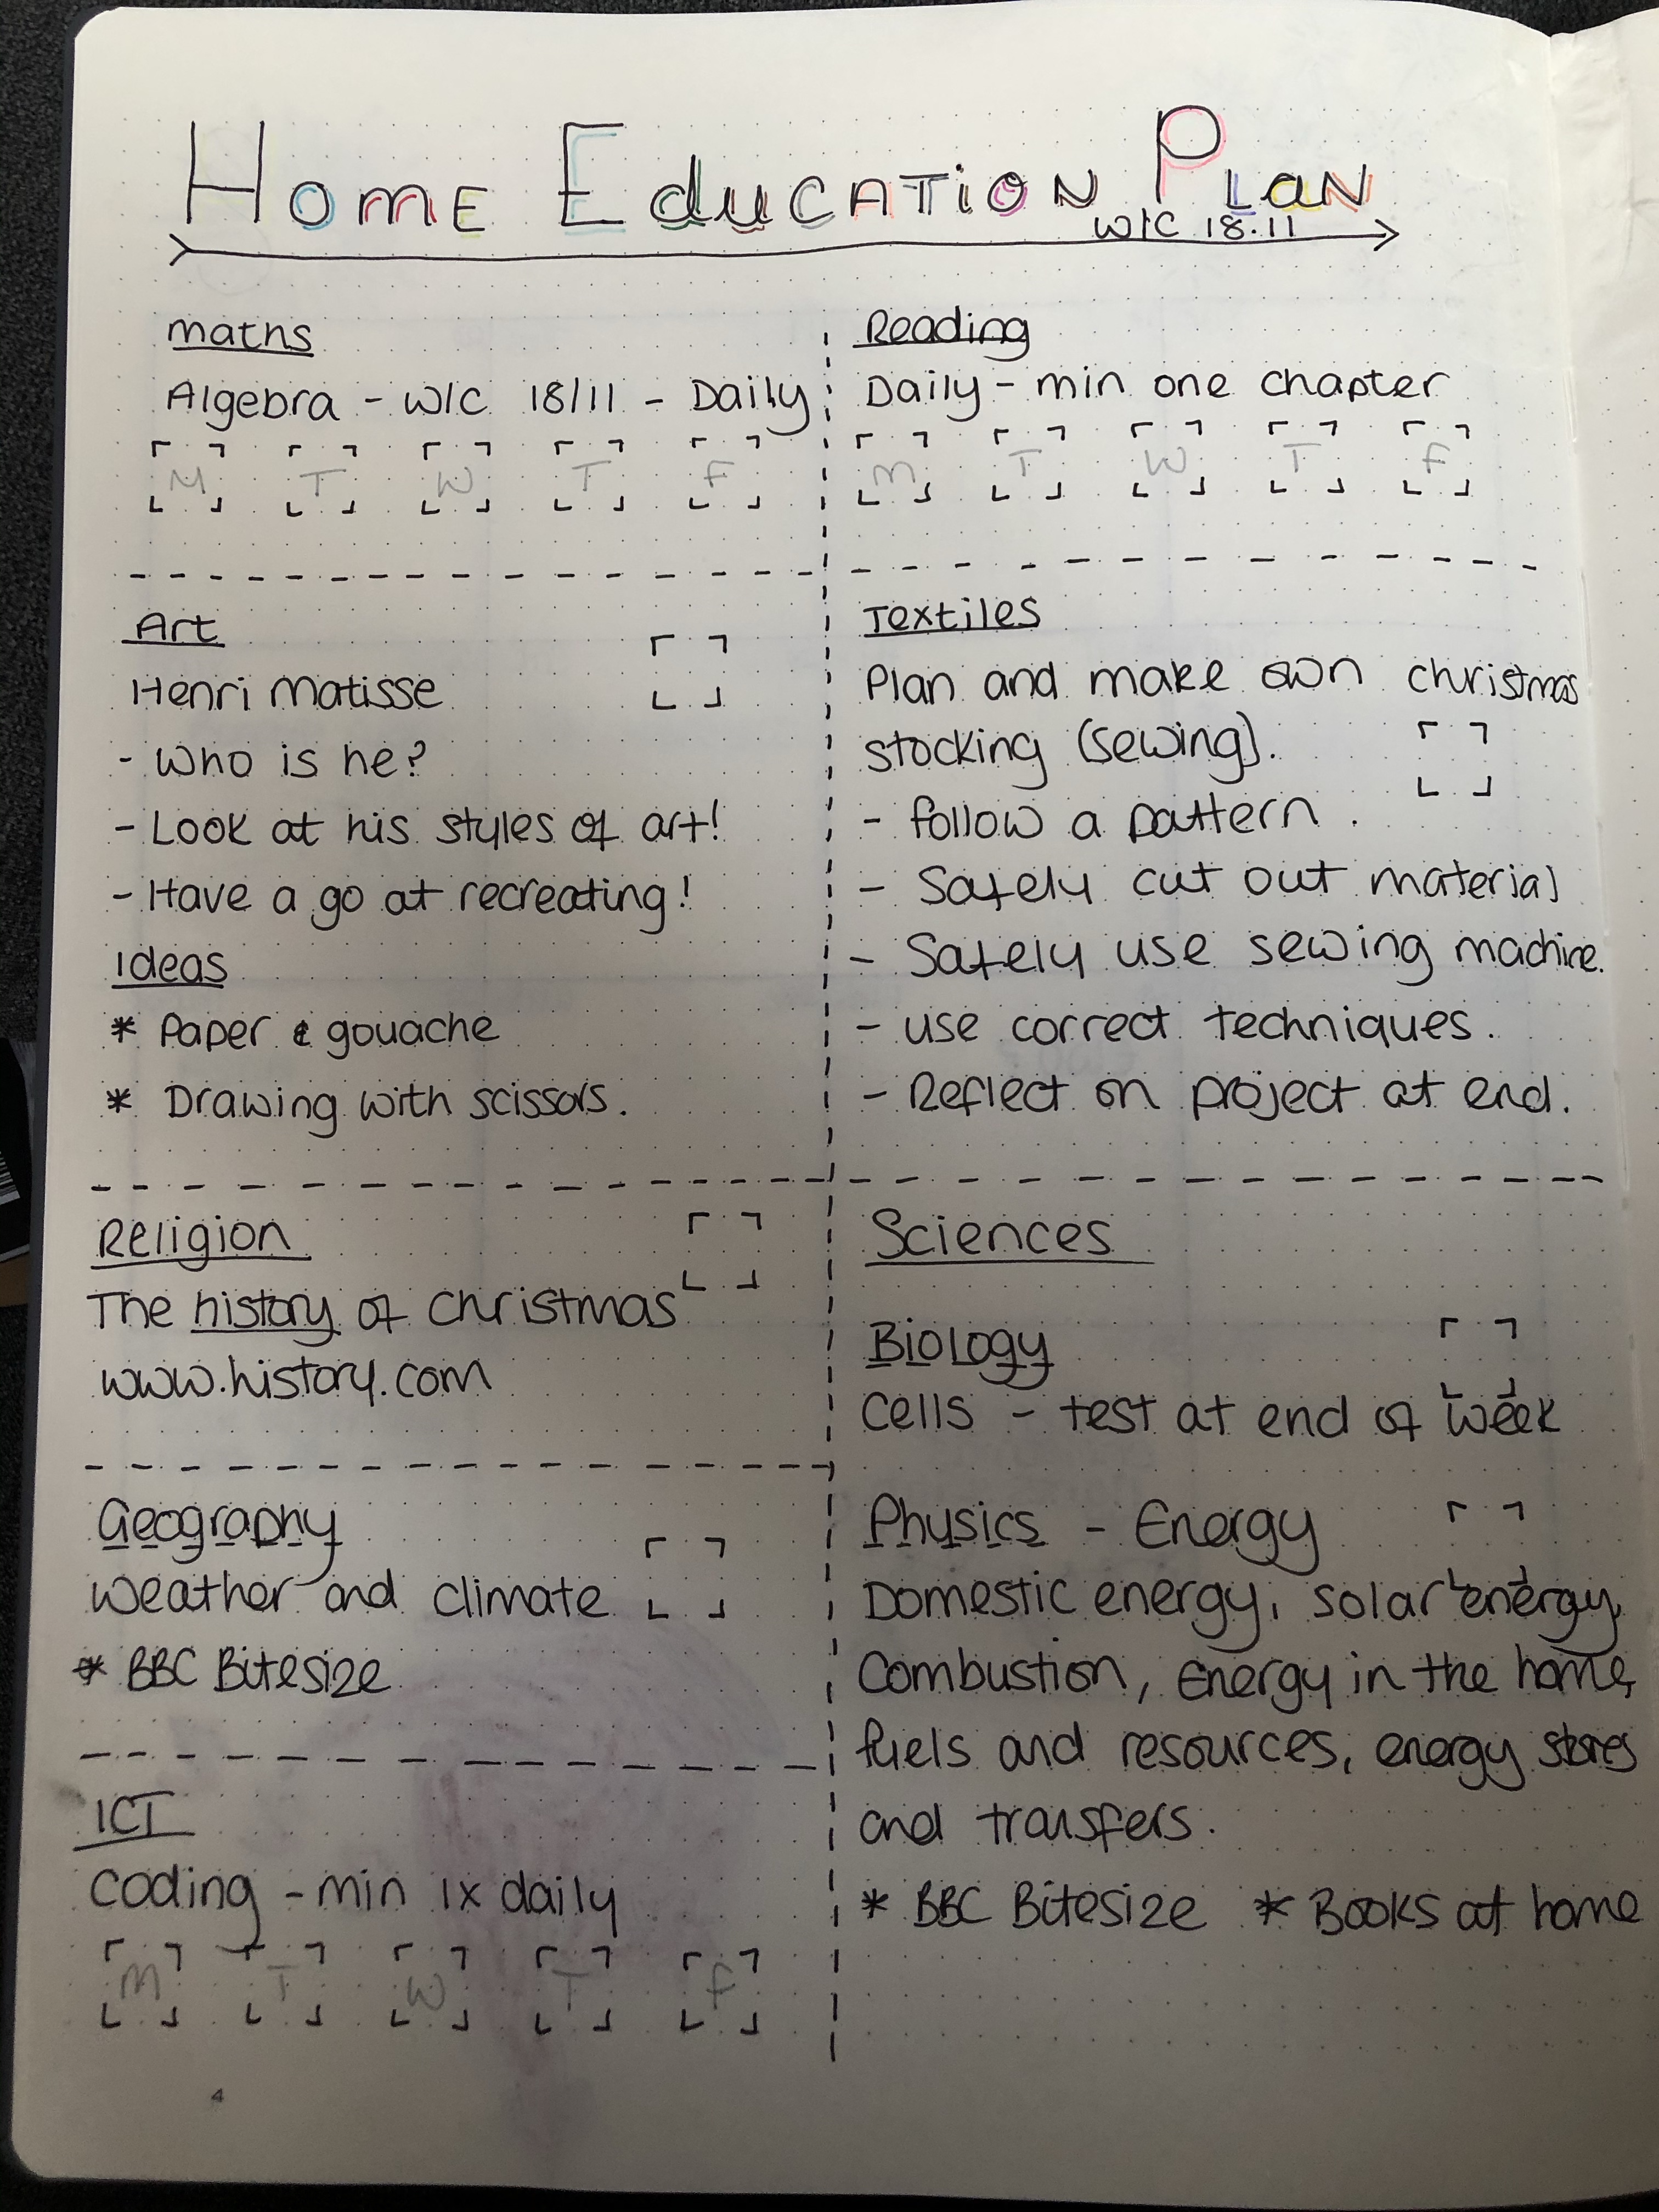 Home Education Plan
W/C 18.11
Maths
Algebra - W/C 18/11 - Daily
M T W T F
Reading
Daily - min one chapter
M T W T F
Art
Henri Matisse
- Who is he?
- Look at his styles of art!
- Have a go at recreating!
Ideas
* Paper & gouache
* Drawing with scissors.
Textiles
Plan and make own christmas
stocking (sewing).
- follow a pattern.
- Safely cut out material
- Safely use sewing machine.
- use correct techniques.
- Reflect on project at end.
Religion
The history of Christmas
www.history.com
Geography
Weather and climate
* BBC Bitesize
ICT
Coding - min 1x daily
M T W T F
Sciences
Biology
Cells - test at end of week
Physics - Energy
Domestic energy, solar energy,
Combustion, Energy in the home,
fuels and resources, energy stores
and transfers.
* BBC Bitesize * Books at home
4